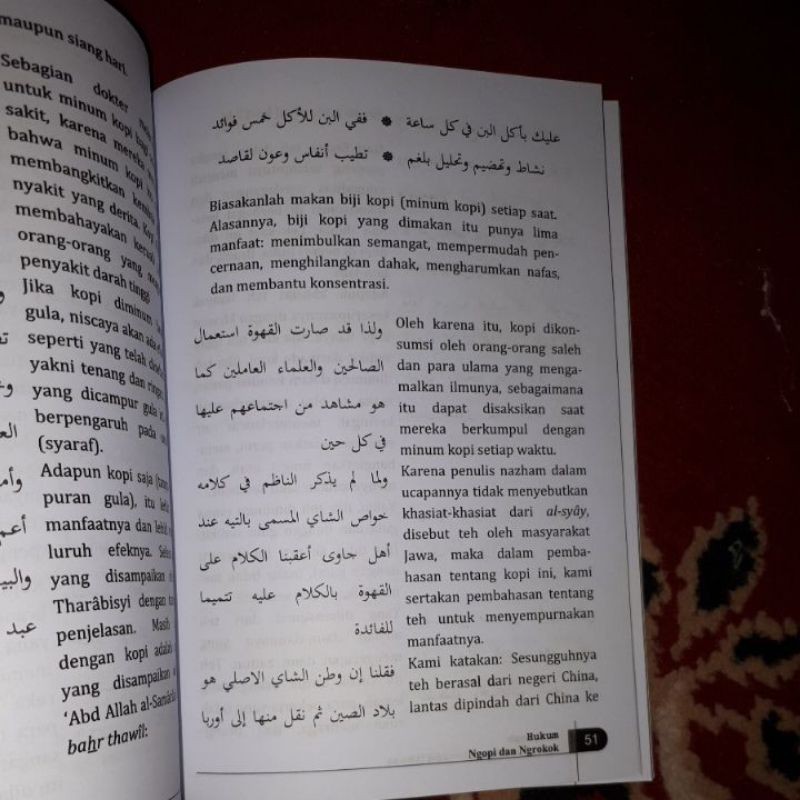 maupun siang hari.
Sebagian dokter
untuk minum kopi
sakit, karena mereka
bahwa minum kopi
membangkitkan
nyakit yang derita.
membahayakan
orang-orang yang
penyakit darah tinggi
Jika kopi diminum
gula, niscaya akan
seperti yang telah
yakni tenang dan
yang dicampur gula
berpengaruh pada
(syaraf).
Adapun kopi saja
puran gula), itu
manfaatnya dan
luruh efeknya.
yang disampaikan
Tharâbisyi dengan
penjelasan. Masih
dengan kopi adalah
yang disampaikan
'Abd Allah al-
bahr thawîl:
عليك بأكل البن في كل ساعة ❋ ففي البن للأكل خمس فوائد
نشاط وتهضيم وتحليل بلغم ❋ تطيب أنفاس وعون لقاصد
Biasakanlah makan biji kopi (minum kopi) setiap saat.
Alasannya, biji kopi yang dimakan itu punya lima
manfaat: menimbulkan semangat, mempermudah pen-
cernaan, menghilangkan dahak, mengharumkan nafas,
dan membantu konsentrasi.
ولذا قد صارت القهوة استعمال
الصالحين والعلماء العاملين كما
هو مشاهد من اجتماعهم عليها
في كل حين
Oleh karena itu, kopi dikon-
sumsi oleh orang-orang saleh
dan para ulama yang menga-
malkan ilmunya, sebagaimana
itu dapat disaksikan saat
mereka berkumpul dengan
minum kopi setiap waktu.
ولما لم يذكر الناظم في كلامه
خواص الشاي المسمى بالتيه عند
أهل جاوى أعقبنا الكلام على
القهوة بالكلام عليه تتميما
للفائدة
Karena penulis nazham dalam
ucapannya tidak menyebutkan
khasiat-khasiat dari al-syây,
disebut teh oleh masyarakat
Jawa, maka dalam pemba-
hasan tentang kopi ini, kami
sertakan pembahasan tentang
teh untuk menyempurnakan
manfaatnya.
فقلنا إن وطن الشاي الاصلي هو
بلاد الصين ثم نقل منها إلى أوربا
Kami katakan: Sesungguhnya
teh berasal dari negeri China,
lantas dipindah dari China ke
Hukum
Ngopi dan Ngrokok
51